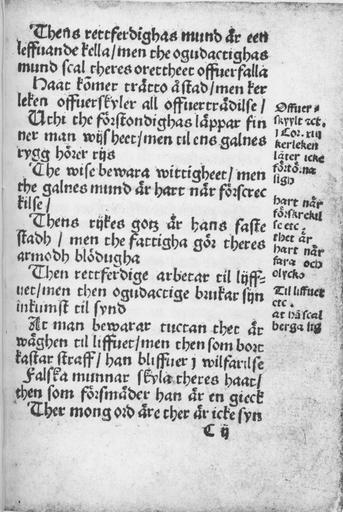 Thens rettferdighas mund är een
leffuande kella/men the ogudactighas
mund scal theres orettheet offuerfalla
Haat kömer trätto åstad/men ker
leken offuerskyler all offuerträdilse/
Uthi the förstondighas läppar fin
ner man wijsheet/men til ens galnes
rygg hörer rijs
The wise bewara wittigheet/men
the galnes mund är hart när förscrec
kilse/
Thens rijkes gotz är hans faste
stadh / men the fattigha gör theres
armodh blödugha
Then rettferdige arbetar til lijff-
uet/men then ogudactige brukar sijn
inkumst til synd
At man bewarar tuctan thet är
wäghen til liffuet/men then som bort
kastar straff/ han bliffuer j wilfarilse
Falska munnar skyla theres haat/
then som försmäder han är en gieck
Ther mong ord äre ther är icke syn
C ij
Offuer-
skyylt ect.
j Cor. xiij
kerleken
läter icke
ligh
hart när
förskrekil
se etc
thet är
hart när
fara och
olycko
Til liffuet
etc
at hä scal
berga sig